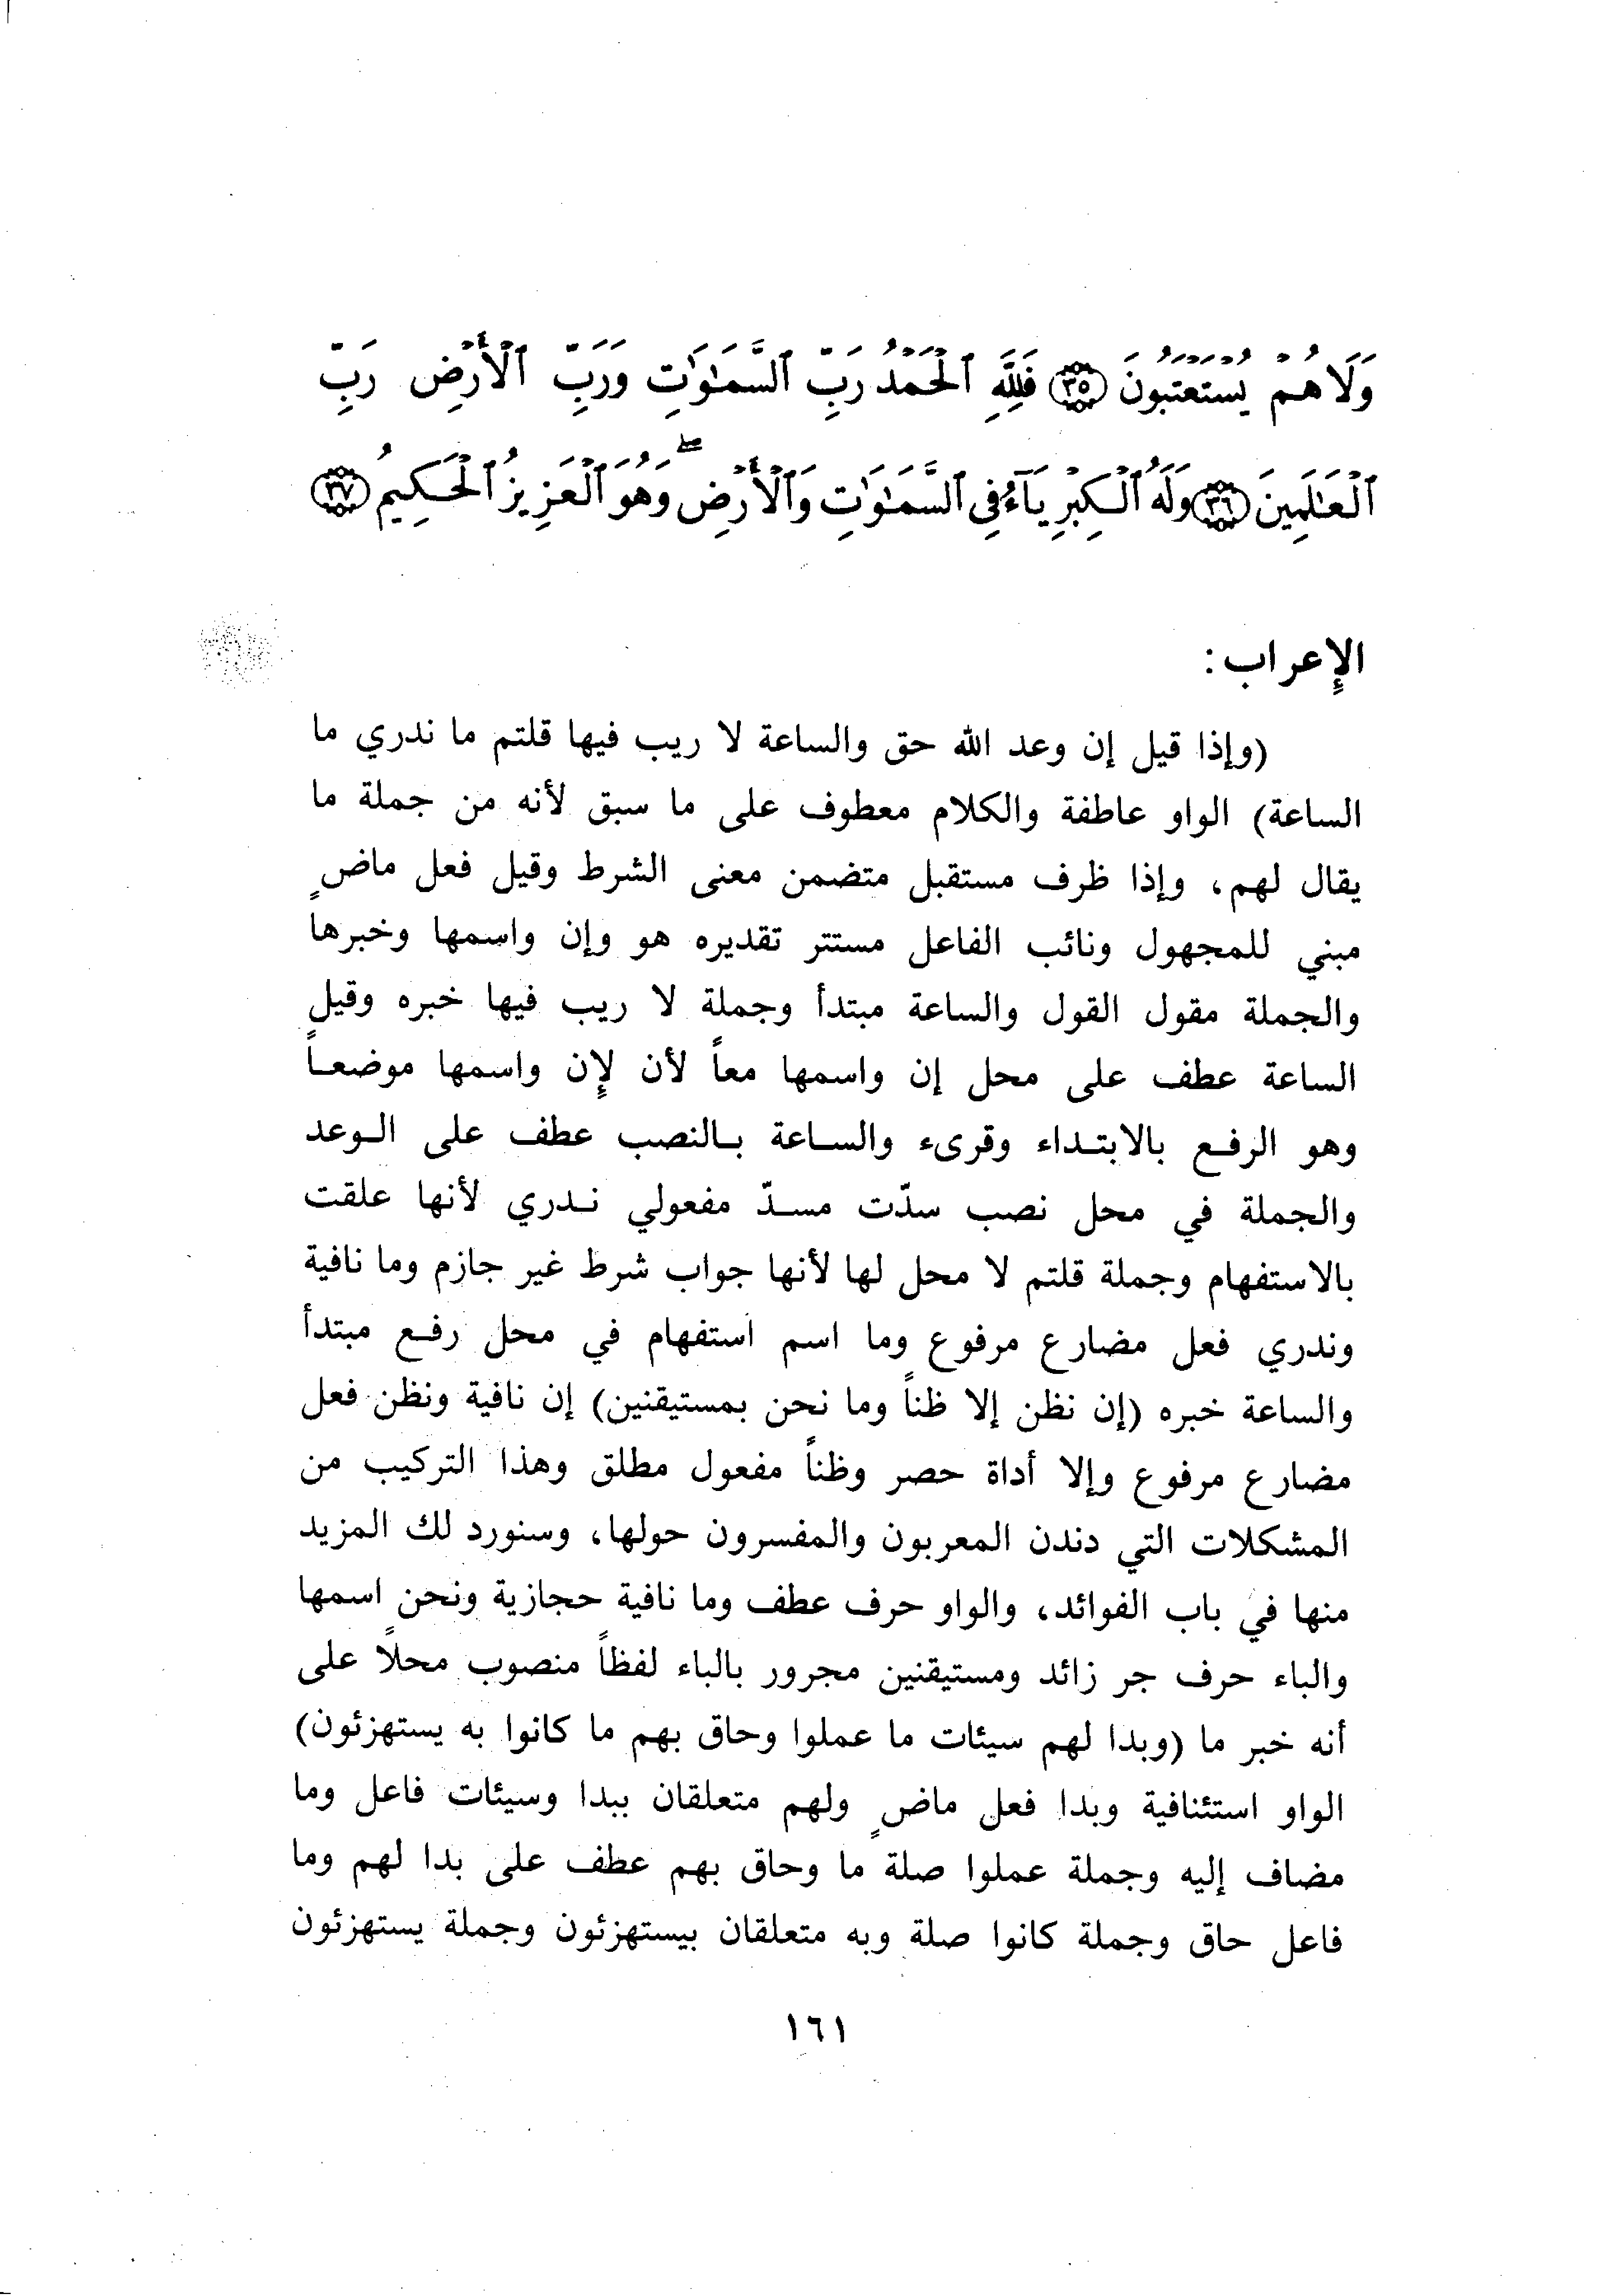 وَلَا هُمْ يُسْتَعْتَبُونَ ٣٥ فَلِلَّهِ ٱلْحَمْدُ رَبِّ ٱلسَّمَٰوَٰتِ وَرَبِّ ٱلْأَرْضِ رَبِّ
ٱلْعَٰلَمِينَ ٣٦ وَلَهُ ٱلْكِبْرِيَآءُ فِي ٱلسَّمَٰوَٰتِ وَٱلْأَرْضِ ۖ وَهُوَ ٱلْعَزِيزُ ٱلْحَكِيمُ ٣٧
الإعراب :
(وإذا قيل إن وعد الله حق والساعة لا ريب فيها قلتم ما ندري ما
الساعة) الواو عاطفة والكلام معطوف على ما سبق لأنه من جملة ما
يقال لهم، وإذا ظرف مستقبل متضمن معنى الشرط وقيل فعل ماضٍ
مبني للمجهول ونائب الفاعل مستتر تقديره هو وإن واسمها وخبرها
والجملة مقول القول والساعة مبتدأ وجملة لا ريب فيها خبره وقيل
الساعة عطف على محل إن واسمها معاً لأن لإن واسمها موضعاً
وهو الرفع بالابتداء وقرىء والساعة بالنصب عطف على الوعد
والجملة في محل نصب سدّت مسدّ مفعولي ندري لأنها علقت
بالاستفهام وجملة قلتم لا محل لها لأنها جواب شرط غير جازم وما نافية
وندري فعل مضارع مرفوع وما اسم استفهام في محل رفع مبتدأ
والساعة خبره (إن نظن إلا ظناً وما نحن بمستيقنين) إن نافية ونظن فعل
مضارع مرفوع وإلا أداة حصر وظناً مفعول مطلق وهذا التركيب من
المشكلات التي دندن المعربون والمفسرون حولها، وسنورد لك المزيد
منها في باب الفوائد، والواو حرف عطف وما نافية حجازية ونحن اسمها
والباء حرف جر زائد ومستيقنين مجرور بالباء لفظاً منصوب محلاً على
أنه خبر ما (وبدا لهم سيئات ما عملوا وحاق بهم ما كانوا به يستهزئون)
الواو استئنافية وبدا فعل ماضٍ ولهم متعلقان ببدا وسيئات فاعل وما
مضاف إليه وجملة عملوا صلة ما وحاق بهم عطف على بدا لهم وما
فاعل حاق وجملة كانوا صلة وبه متعلقان بيستهزئون وجملة يستهزئون
١٦١